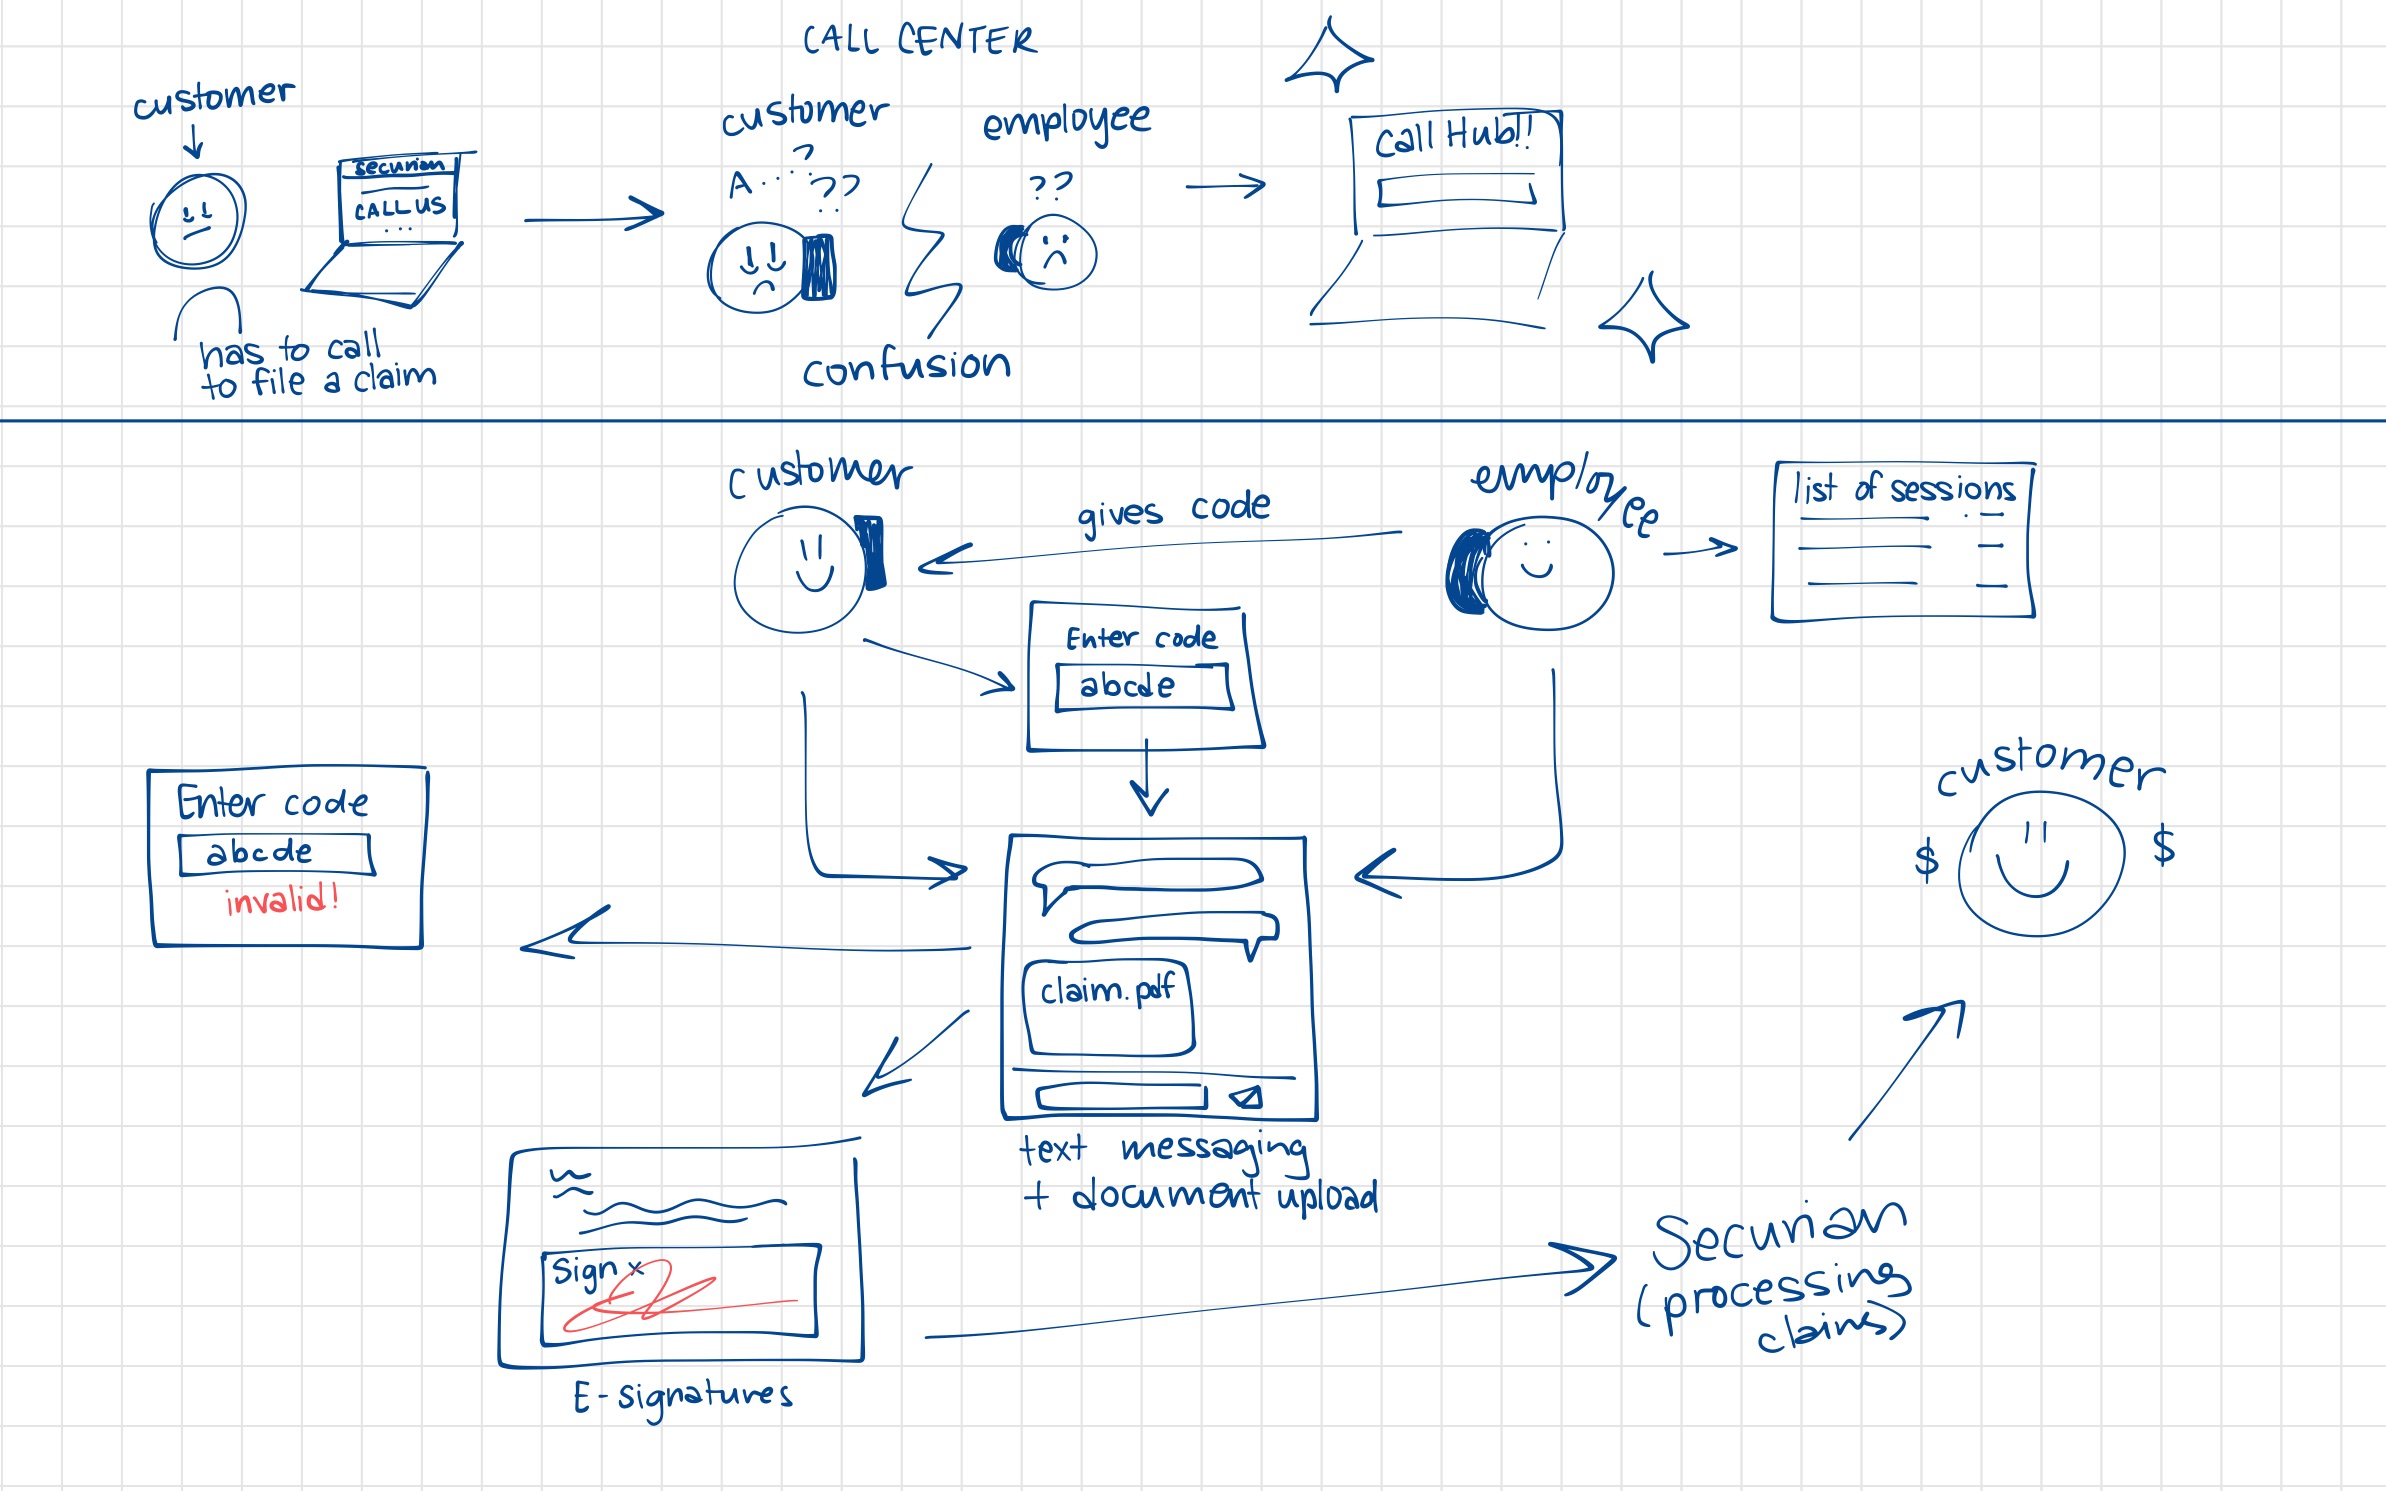 CALL CENTER
customer
securian
CALL US
...
has to call
to file a claim
customer
?
A.... ??
employee
??
confusion
Call Hub!!
customer
gives code
employee
list of sessions
Enter code
abcde
Enter code
abcde
invalid!
claim.pdf
text messaging
+ document upload
customer
$ $
Sign x
E-signatures
Securian
(processing
claims)